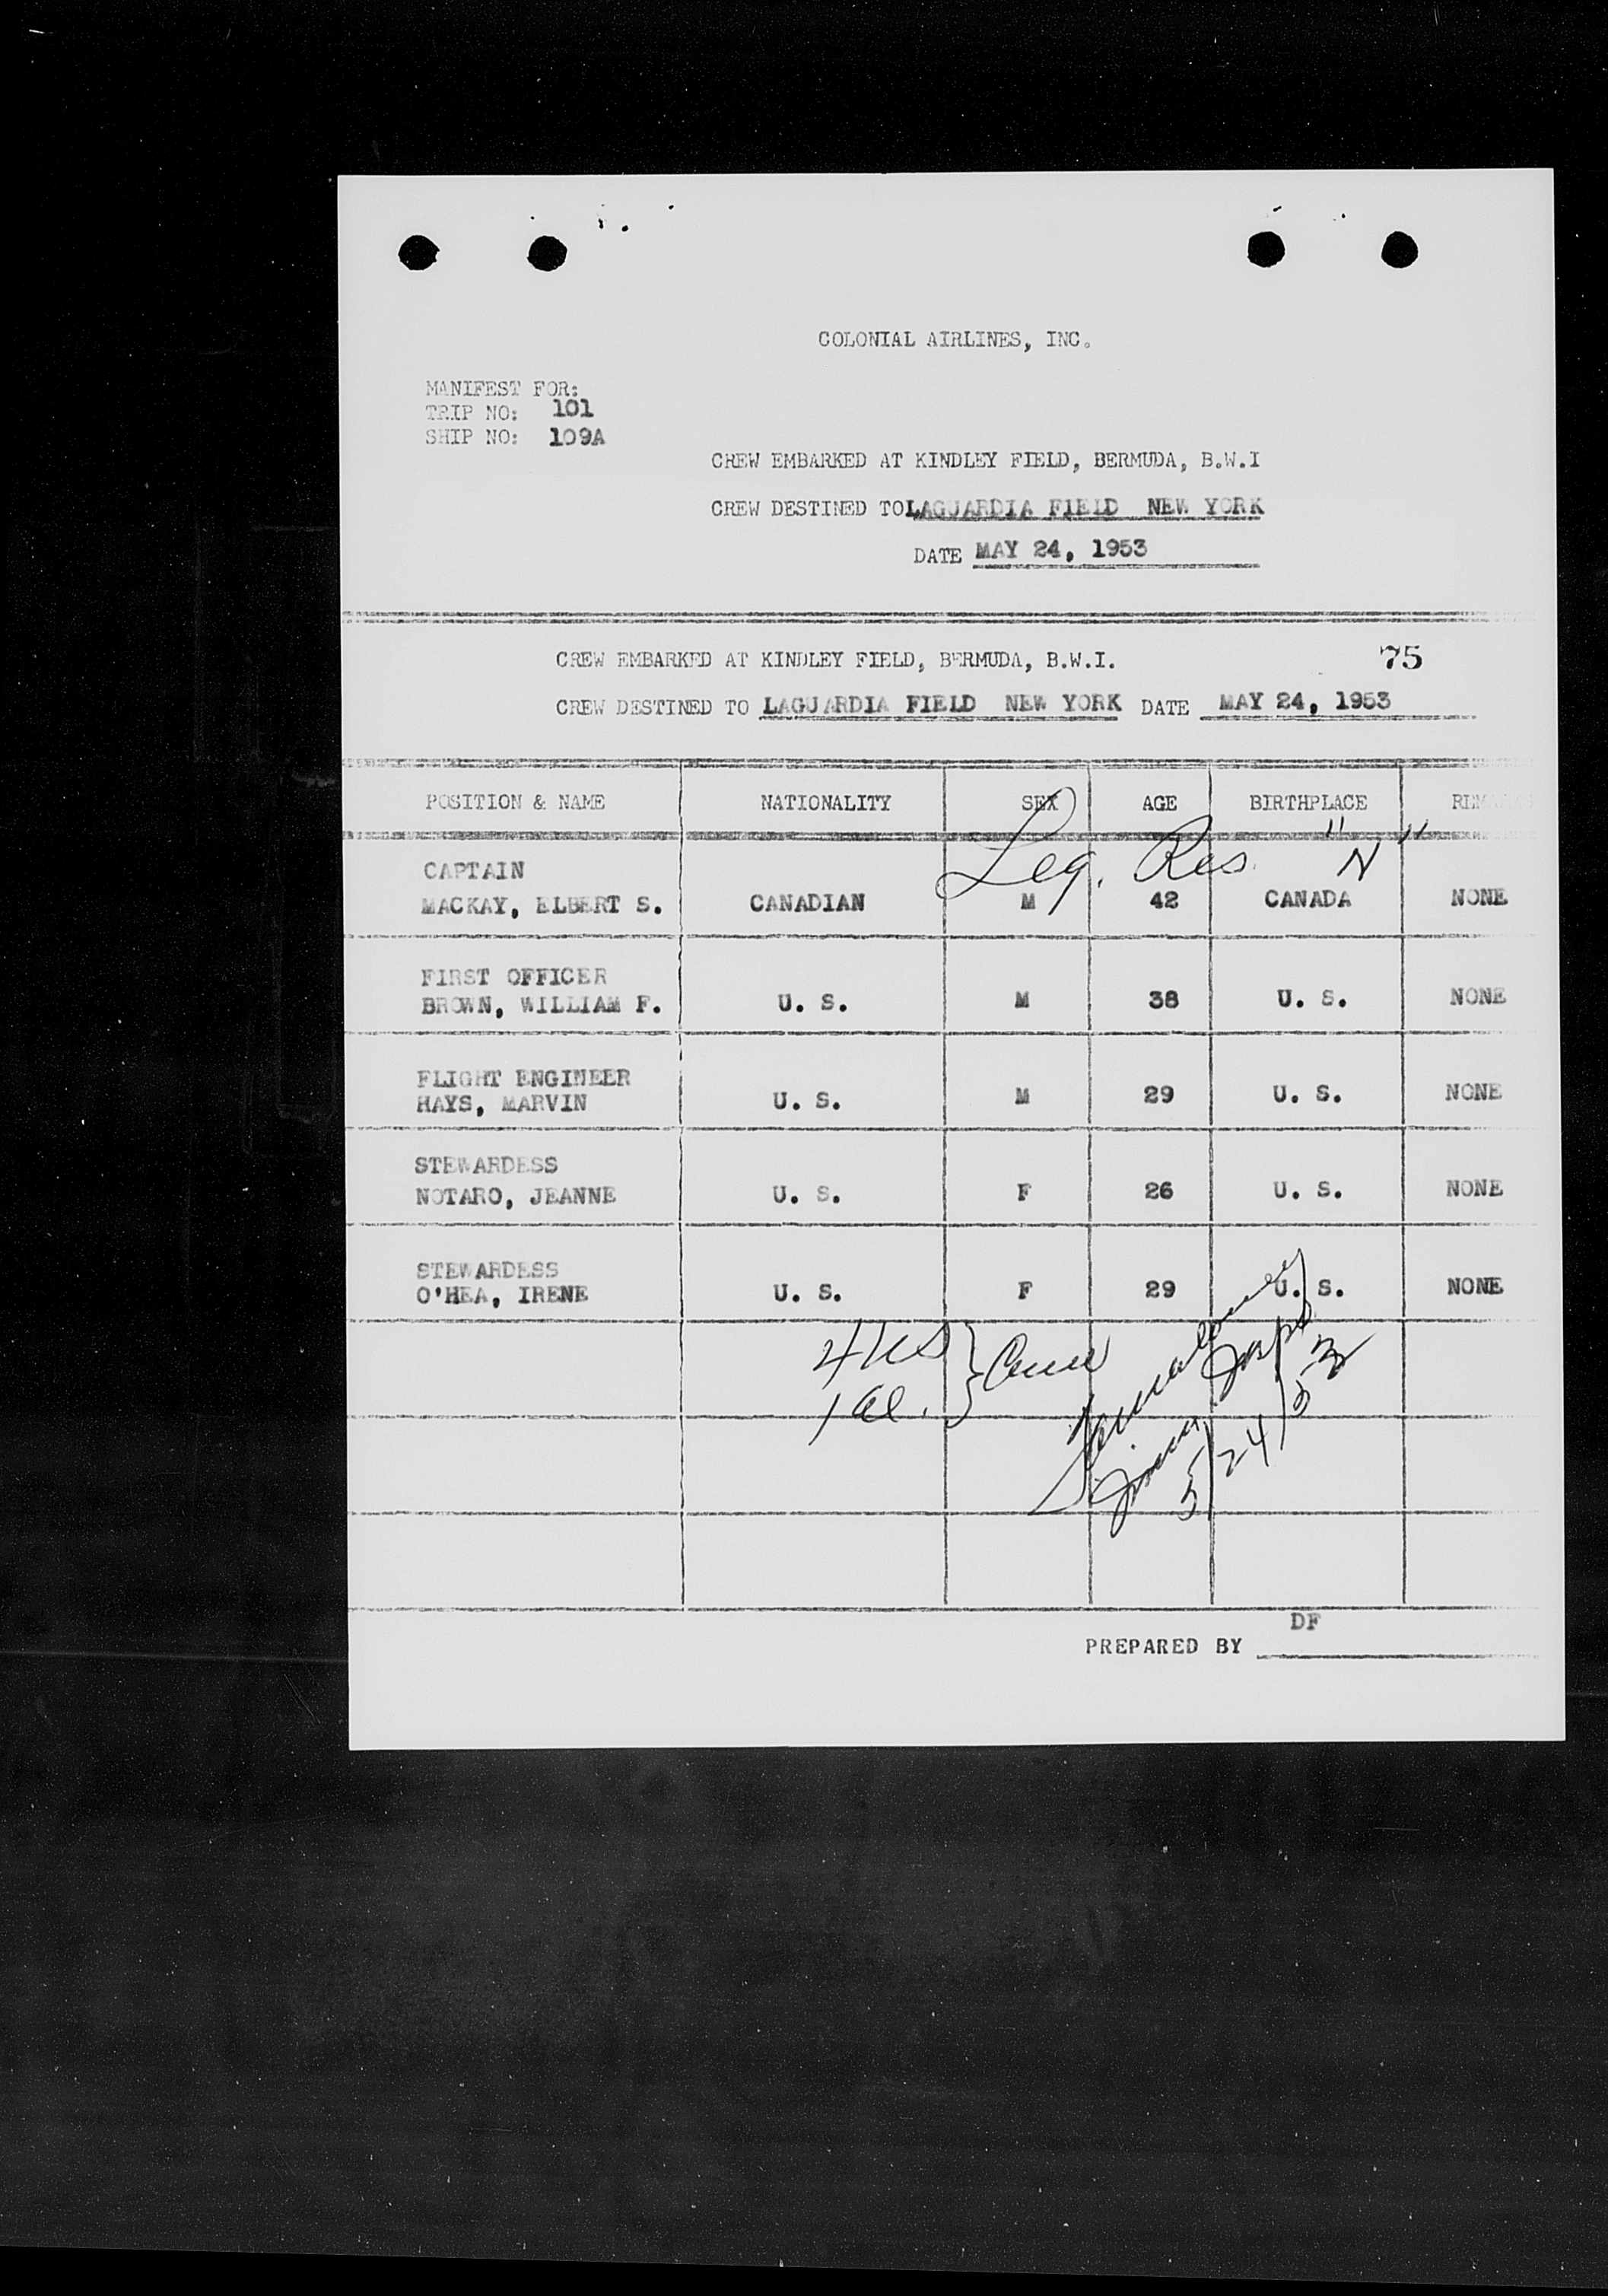 COLONIAL AIRLINES, INC.
MANIFEST FOR:
TRIP NO: 101
SHIP NO: 109A
CREW EMBARKED AT KINDLEY FIELD, BERMUDA, B.W.I
CREW DESTINED TO LAGUARDIA FIELD NEW YORK
DATE MAY 24, 1953
CREW EMBARKED AT KINDLEY FIELD, BERMUDA, B.W.I. 75
CREW DESTINED TO LAGUARDIA FIELD NEW YORK DATE MAY 24, 1953
POSITION & NAME NATIONALITY SEX AGE BIRTHPLACE
Leg. Res. "N"
CAPTAIN
MACKAY, ELBERT S. CANADIAN M 42 CANADA NONE
FIRST OFFICER
BROWN, WILLIAM F. U. S. M 38 U. S. NONE
FLIGHT ENGINEER
HAYS, MARVIN U. S. M 29 U. S. NONE
STEWARDESS
NOTARO, JEANNE U. S. F 26 U. S. NONE
STEWARDESS
O'HEA, IRENE U. S. F 29 U. S. NONE
4 US
1 al.
5/24/53
DF
PREPARED BY